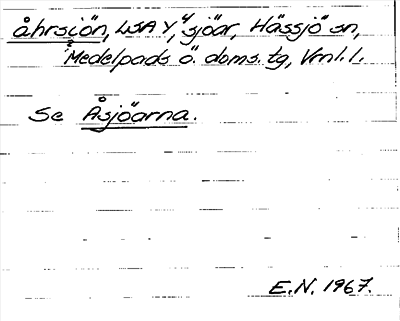 åhrsiön, LSA Y, "sjöar, Hässjö sn,
Medelpads ö. doms. tg, Vrnl. l.
Se Åsjöarna.
E.N. 1967.